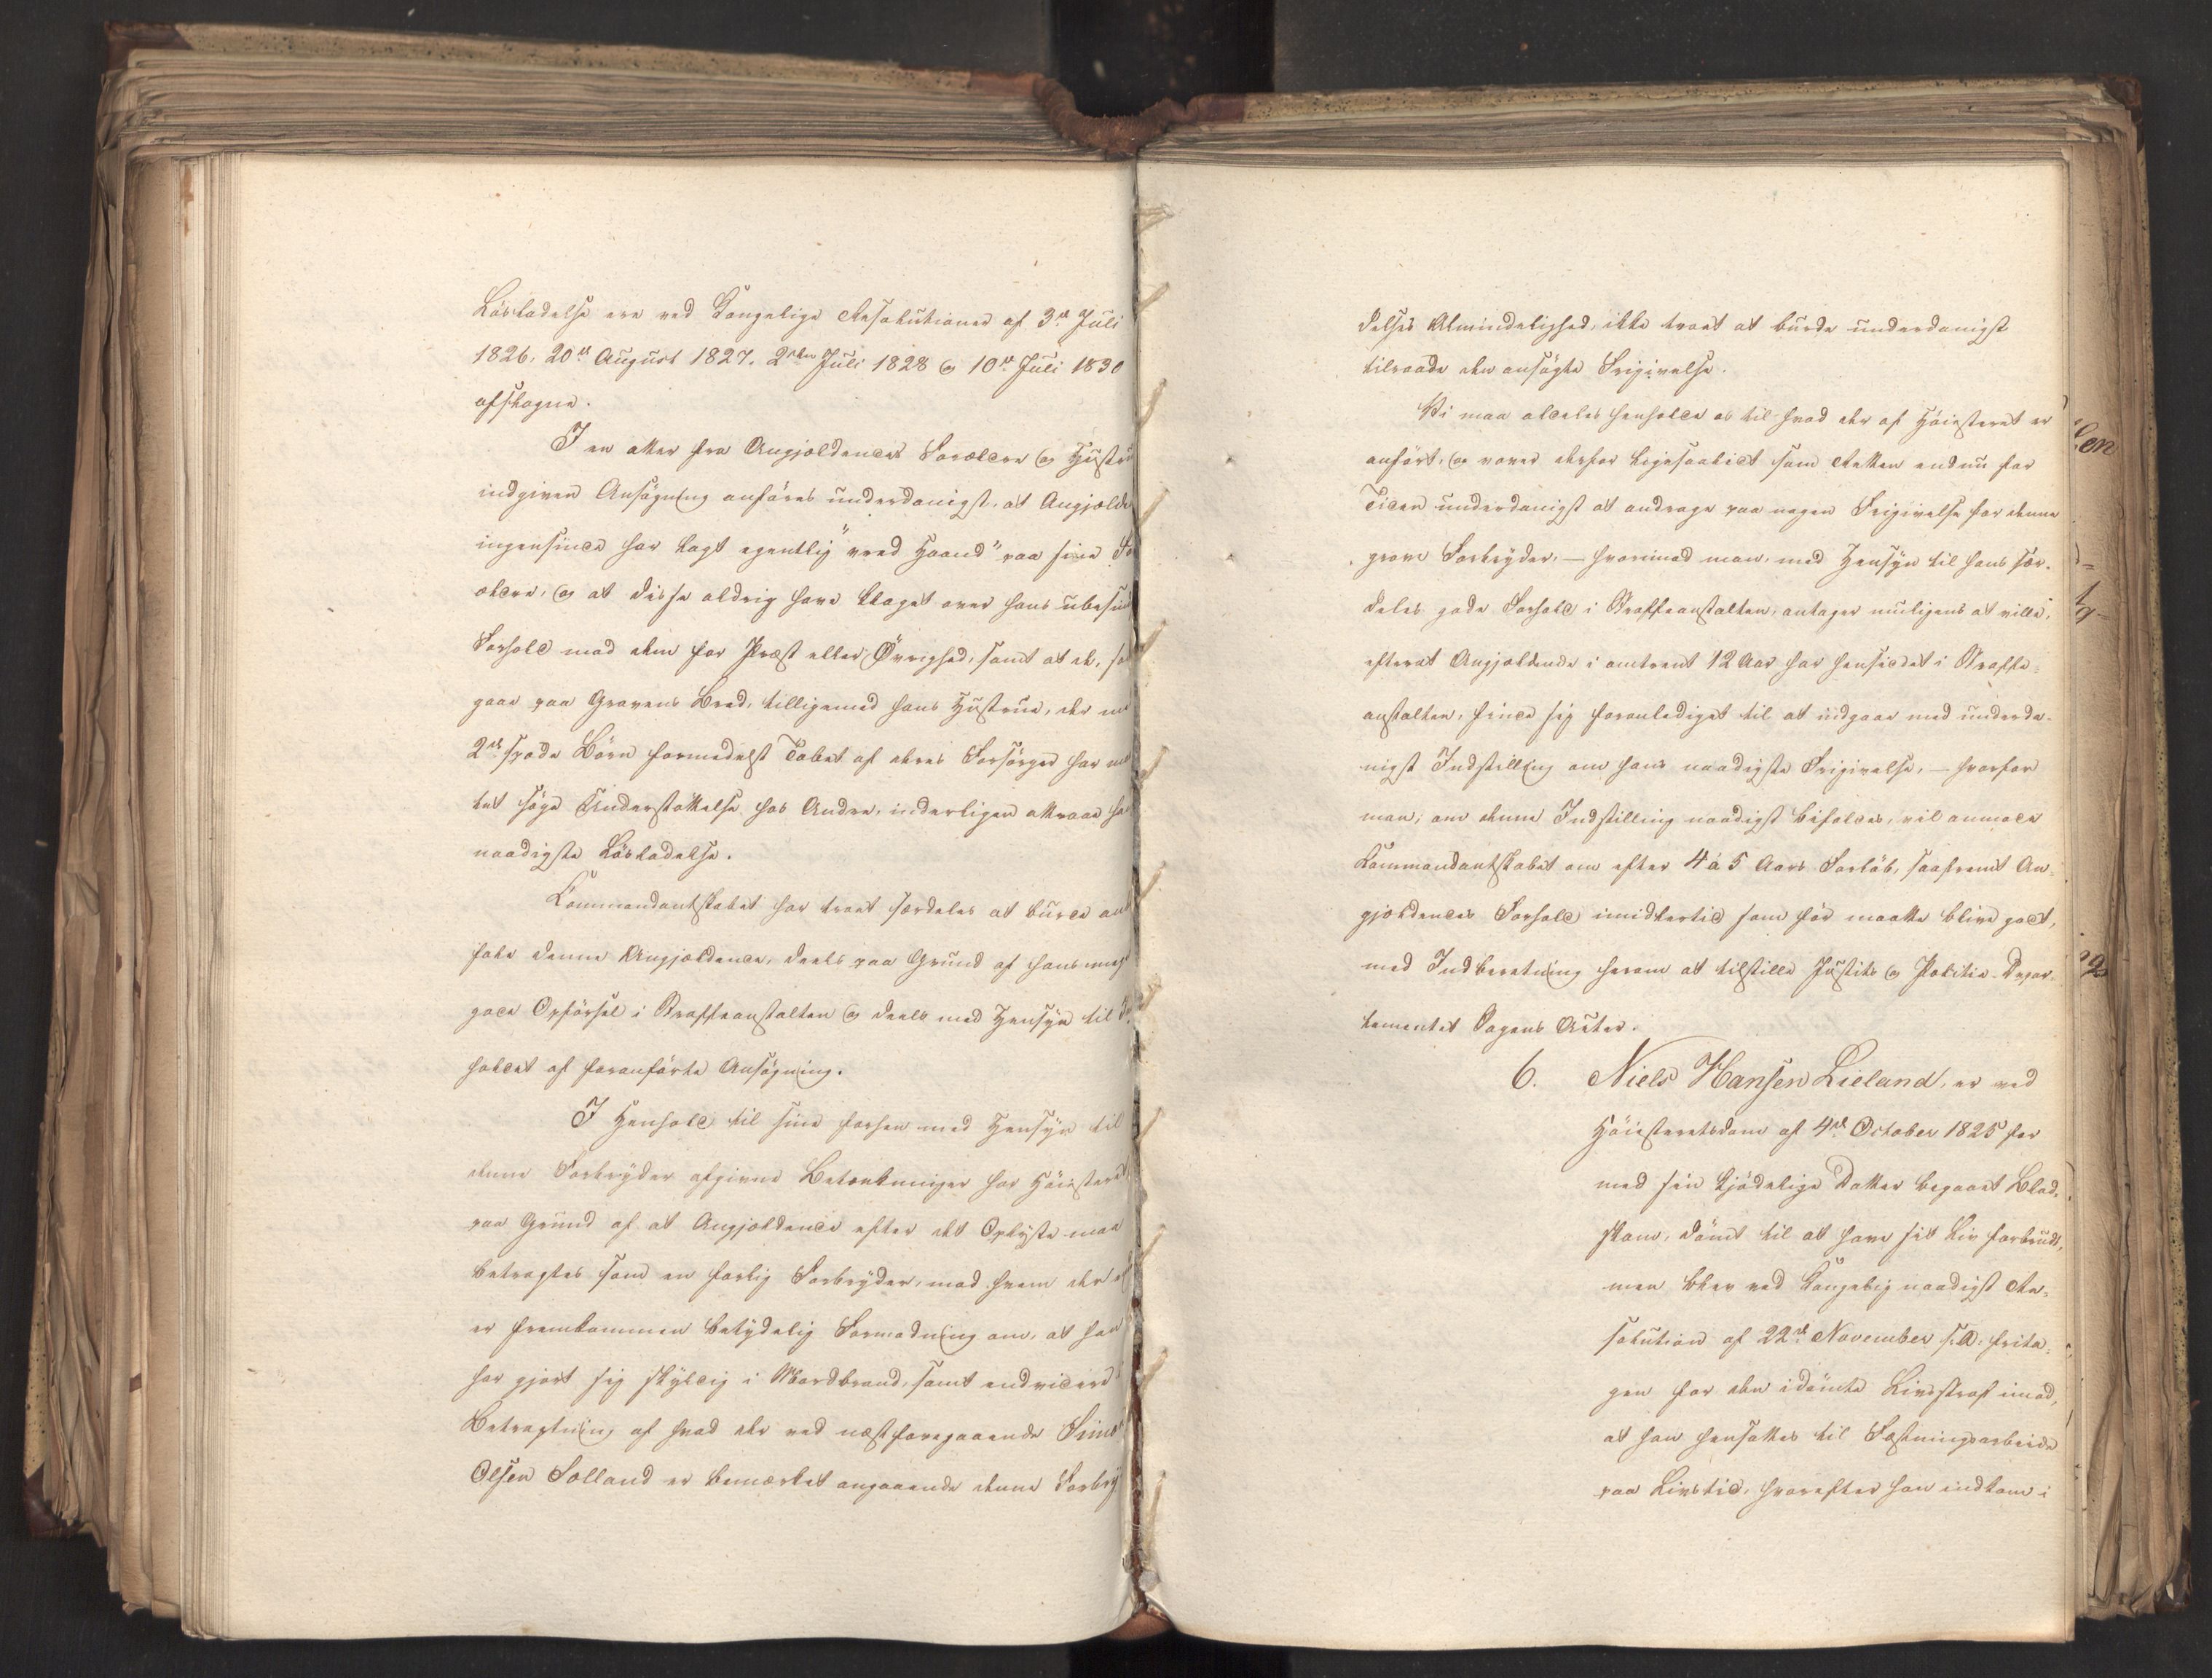 Lösladelse ere ved Kongelige Resolutioner af 3die Juli
1826, 20de August 1827, 2den Juli 1828 og 10de Juli 1830
afslagne.
I en atter fra Angjældendes Forældre og Hustru
indgiven Ansögning anföres underdanigst, at Angjælde
ingensinde har lagt egentlig "vred Haand" paa sine For
ældre, og at disse aldrig have klaget over hans ubesin
Forhold mod dem for Præst eller Övrighed, samt at de, som
gaae paa Gravens Bred, tilligemed hans Hustrue, der med
2de spæde Börn formedelst Tabet af deres Forsörger har
tet söge Understöttelse hos Andre, inderligen attraae ha
naadigste Lösladelse.
Kommandantskabet har troet særdeles at burde an
fale denne Angjældende, deels paa Grund af hans meget
gode Opförsel i Straffeanstalten og deels med Hensyn til In
holdet af foranförte Ansögning.
I Henhold til sine forhen med Hensyn til
denne Forbryder afgivne Betænkninger har Höiesteret
paa Grund af at Angjældende efter det Oplyste maa
betragtes som en farlig Forbryder, mod hvem der
er fremkommen betydelig Formodning om, at han
har gjort sig skyldig i Mordbrand, samt endvidere i
Betragtning af hvad der ved næstforegaaende Simon
Olsen Solland er bemærket angaaende denne Forbry
delses Almindelighed, ikke troet at burde underdanigst
tilraade den ansögte Frigivelse.
Vi maa aldeles henholde os til hvad der af Höiesteret er
anfört, og vover derfor ligesaalidt som Retten endnu for
Tiden underdanigst at andrage paa nogen Frigivelse for denne
grove Forbryder, — hvorimod man, med Hensyn til hans sær-
deles gode Forhold i Straffeanstalten, antager muligens at ville,
efterat Angjældende i omtrent 12 Aar har hensiddet i Straffe-
anstalten, finde sig foranlediget til at indgaae med underda-
nigst Indstilling om hans naadigste Frigivelse, — hvorfor
man, om denne Indstilling naadigst bifaldes, vil anmode
Kommandantskabet om efter 4 á 5 Aars Forlöb, saafremt An-
gjældendes Forhold imidlertid som för maatte blive godt,
med Indberetning herom at tilstille Justits og Politie-Depar-
tementet Sagens Acter.
6. Niels Hansen Lieland, er ved
Höiesteretsdom af 4de October 1825 for
med sin kjödelige Datter begaaet Blod-
skam, dömt til at have sit Liv forbrudt,
men blev ved Kongelig naadigst Re-
solution af 22de November s. A. frita-
gen for den idömte Livsstraf imod,
at han hensattes til Fæstningsarbeide
paa Livstid, hvorefter han indkom i